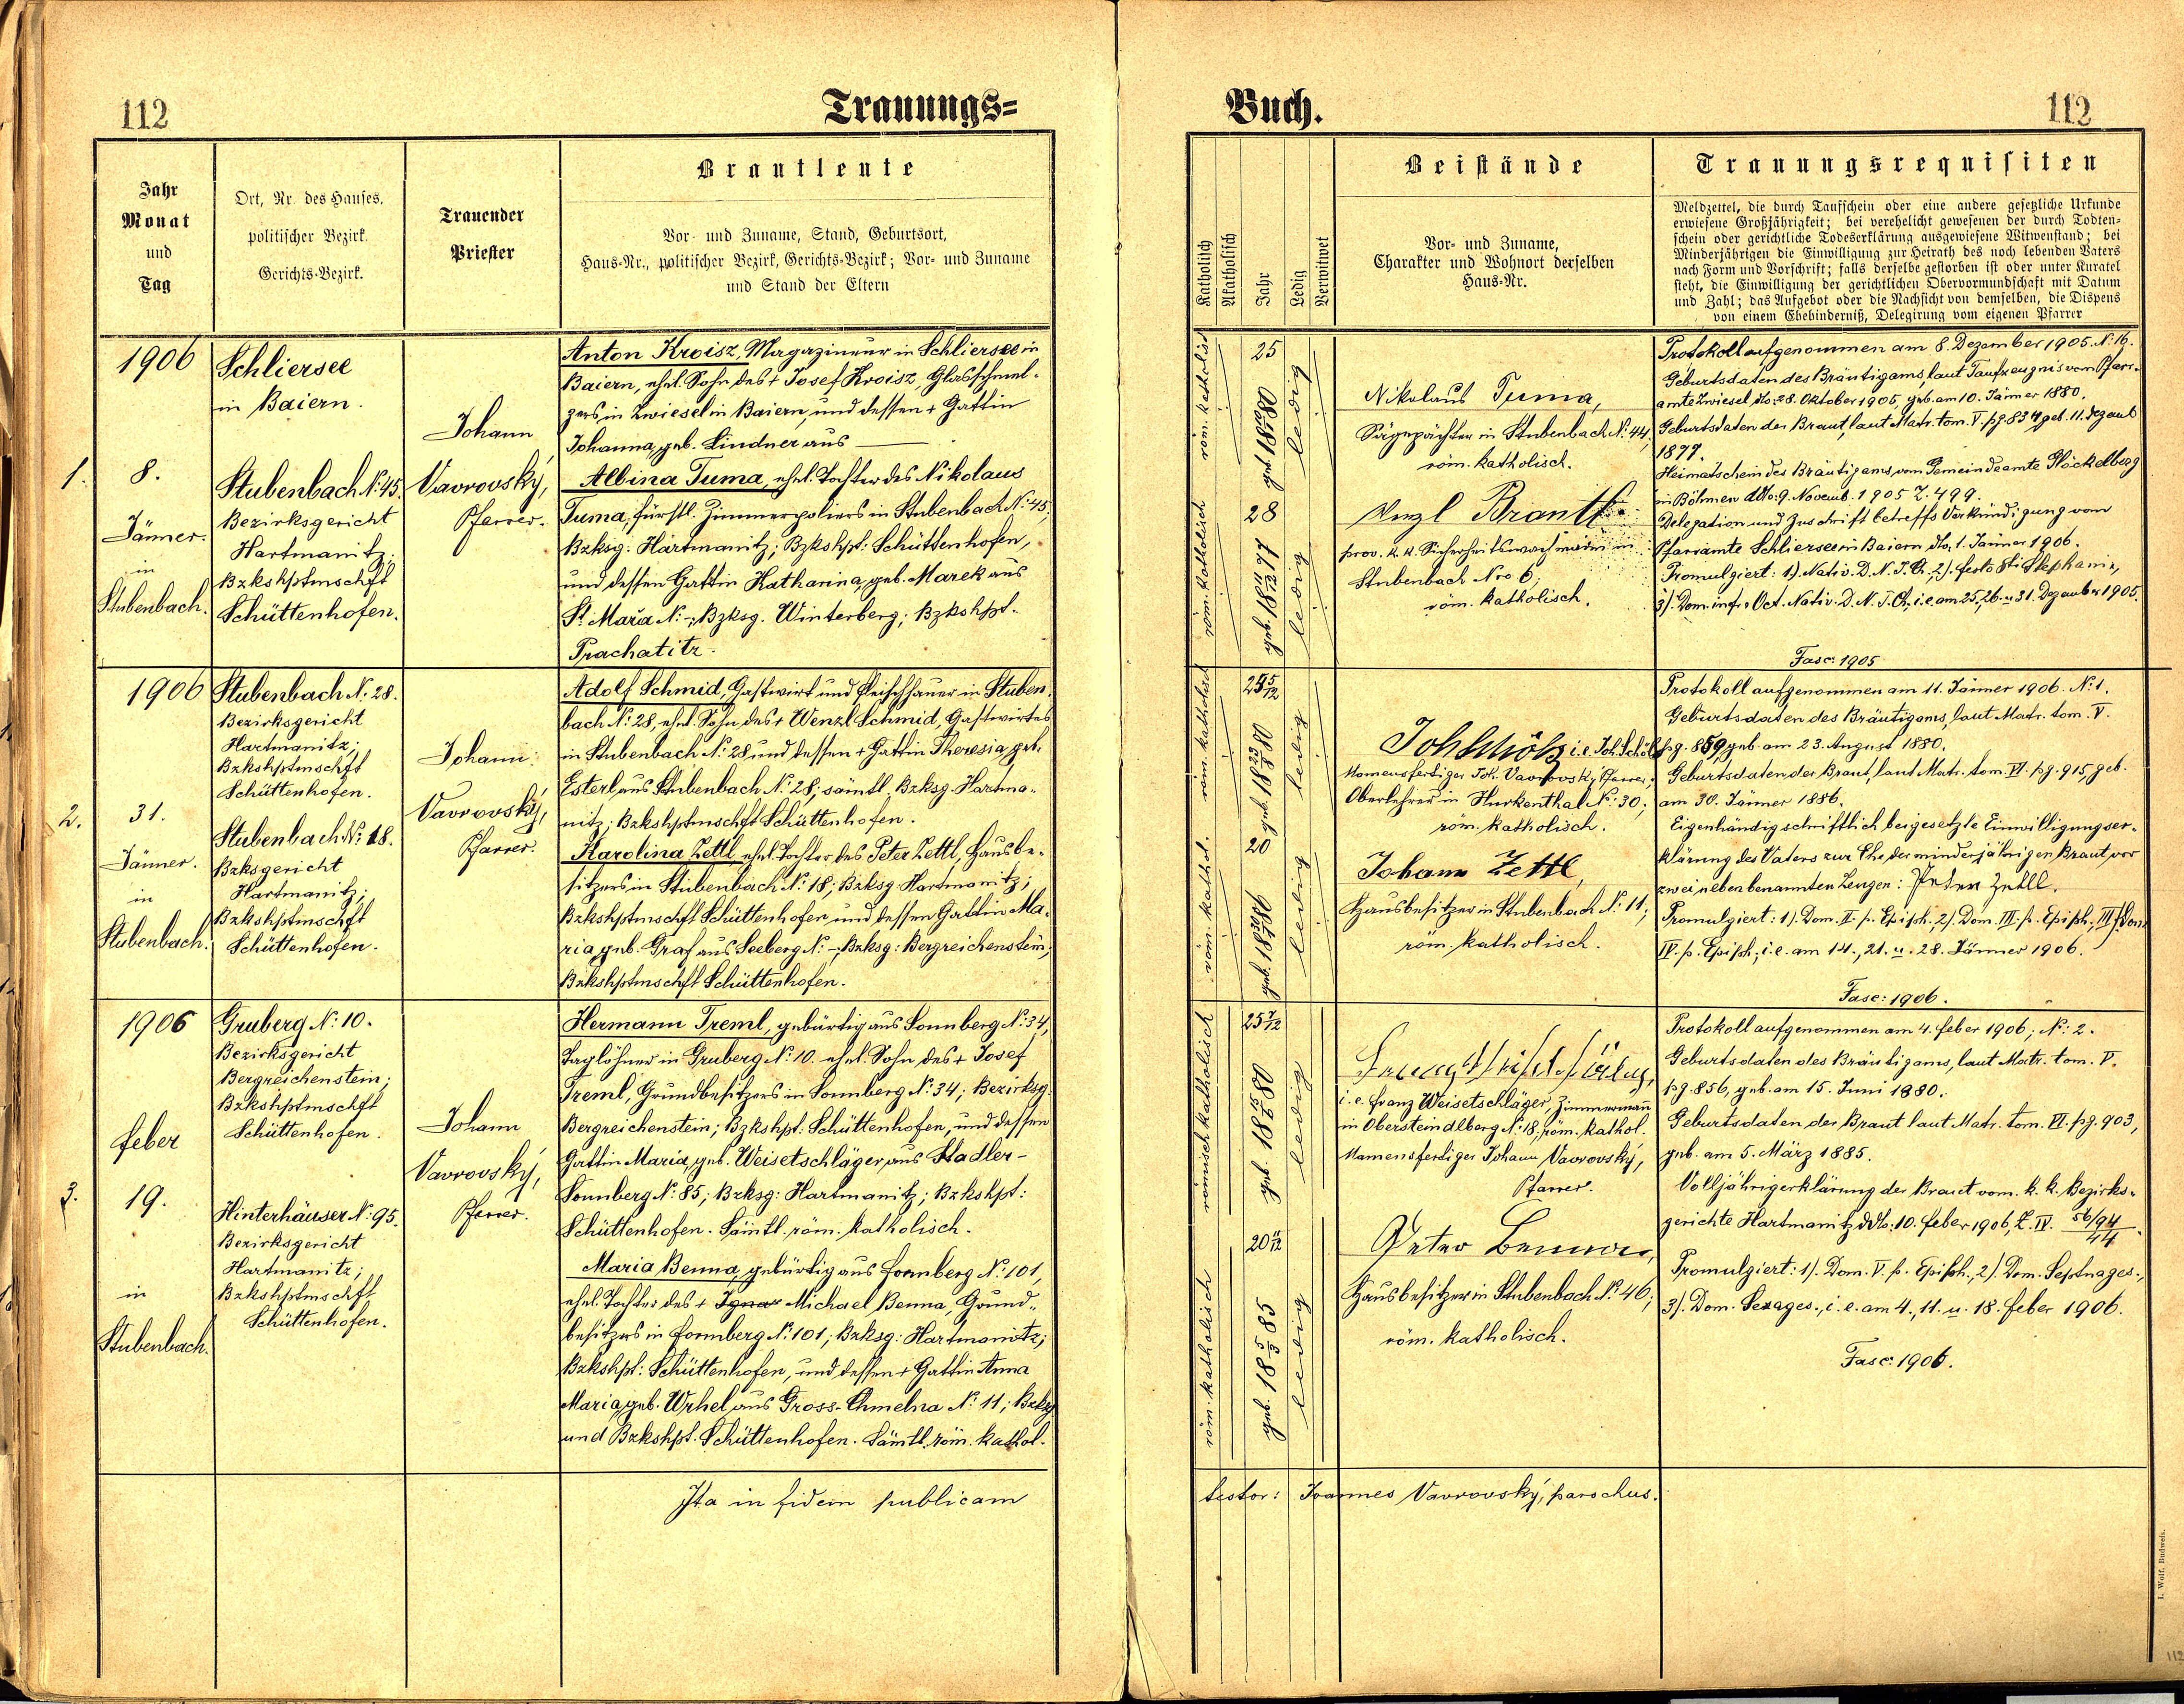 112
Trauungs=
Jahr
Monat
und
Tag
Ort, Nr. des Hauses,
politischer Bezirk,
Gerichts-Bezirk.
Trauender
Priester
Brautleute
Vor- und Zuname, Stand, Geburtsort,
Haus-Nr., politischer Bezirk, Gerichts-Bezirk; Vor- und Zuname
und Stand der Eltern
1.
1906
8.
Jänner.
in
Stubenbach.
Schliersee
in Baiern.
Stubenbach N: 45.
Bezirksgericht
Hartmanitz;
Bzkshptmschft
Schüttenhofen.
Johann
Vavrovský,
Pfarrer.
Anton Kroisz, Magazineur in Schliersee in
Baiern, ehel. Sohn des + Josef Kroisz, Glasschmel-
zers in Zwiesel in Baiern, und dessen + Gattin
Johanna, geb. Lindner aus —
Albina Tuma, ehel. Tochter des Nikolaus
Tuma, fürstl. Zimmerpoliers in Stubenbach N: 45;
Bzksg: Hartmanitz; Bzkshpt: Schüttenhofen,
und dessen Gattin Katharina, geb. Marek aus
St. Mařa N: -; Bzksg. Winterberg; Bzkshpt.
Prachatitz.
2.
1906
31.
Jänner.
in
Stubenbach.
Stubenbach N: 28.
Bezirksgericht
Hartmanitz;
Bzkshptmschft
Schüttenhofen.
Stubenbach N: 18.
Bzksgericht
Hartmanitz;
Bzkshptmschft
Schüttenhofen.
Johann
Vavrovský,
Pfarrer.
Adolf Schmid, Gastwirt und Fleischhauer in Stuben-
bach N: 28, ehel. Sohn des + Wenzl Schmid, Gastwirtes
in Stubenbach N: 28 und dessen + Gattin Theresia, geb.
Esterl aus Stubenbach N: 28; sämtl. Bzksg. Hartma-
nitz; Bzkshptmschft Schüttenhofen.
Karolina Zettl, ehel. Tochter des Peter Zettl, Hausbe-
sitzers in Stubenbach N: 18; Bzksg. Hartmanitz;
Bzkshptmschft Schüttenhofen, und dessen Gattin Ma-
ria, geb. Graf aus Seeberg N: -; Bzksg: Bergreichenstein;
Bzkshptmschft Schüttenhofen.
3.
1906
Feber
19.
in
Stubenbach.
Gruberg N: 10.
Bezirksgericht
Bergreichenstein;
Bzkshptmschft
Schüttenhofen.
Hinterhäuser N: 95.
Bezirksgericht
Hartmanitz;
Bzkshptmschft
Schüttenhofen.
Johann
Vavrovský,
Pfarrer.
Hermann Treml, gebürtig aus Sonnberg N: 34,
Taglöhner in Gruberg N: 10. ehel. Sohn des + Josef
Treml, Grundbesitzers in Sonnberg N: 34; Bezirksg.
Bergreichenstein; Bzkshpt: Schüttenhofen, und dessen
Gattin Maria, geb. Weisetschläger aus Stadler-
Sonnberg N: 85; Bzksg: Hartmanitz; Bzkshpt:
Schüttenhofen. Sämtl. röm. katholisch.
Maria Benna, gebürtig aus Formberg N: 101,
ehel. Tochter des + Ignaz Michael Benna, Grund-
besitzers in Formberg N: 101; Bzksg: Hartmanitz;
Bzkshpt: Schüttenhofen, und dessen + Gattin Anna
Maria, geb. Wrhel aus Gross-Chmelna N: 11; Bzksg
und Bzkshpt. Schüttenhofen. Sämtl. röm. kathol.
Ita in fidem publicam
Buch.
112
Katholisch
Akatholisch
Jahr
Ledig
Verwitwet
Beistände
Vor- und Zuname,
Charakter und Wohnort derselben
Haus-Nr.
Trauungsrequisiten
Meldzettel, die durch Taufschein oder eine andere gesetzliche Urkunde
erwiesene Großjährigkeit; bei verehelicht gewesenen der durch Todten-
schein oder gerichtliche Todeserklärung ausgewiesene Witwenstand; bei
Minderjährigen die Einwilligung zur Heirath des noch lebenden Vaters
nach Form und Vorschrift; falls derselbe gestorben ist oder unter Kuratel
steht, die Einwilligung der gerichtlichen Obervormundschaft mit Datum
und Zahl; das Aufgebot oder die Nachsicht von demselben, die Dispens
von einem Ehebinderniß, Delegirung vom eigenen Pfarrer
röm. katholisch
25
geb. 18 10/1 80
ledig
röm. katholisch
28
geb. 18 11/12 77
ledig
Nikolaus Tuma,
Sägepächter in Stubenbach N: 44,
röm. katholisch.
Wenzl Brantl
prov. k. k. Sicherheitswachmann in
Stubenbach Nro 6,
röm. katholisch.
Protokoll aufgenommen am 8. Dezember 1905. N: 16.
Geburtsdaten des Bräutigams, laut Taufzeugnis vom Pfarr-
amte Zwiesel dto: 28. Oktober 1905, geb. am 10. Jänner 1880.
Geburtsdaten der Braut, laut Matr. tom. V. pg. 834, geb. 11. Dezemb
1877.
Heimatschein des Bräutigams vom Gemeindeamte Stöckelberg
in Böhmen ddto: 9. Novemb. 1905 Z. 499.
Delegation und Zuschrift betreffs Verkündigung vom
Pfarramte Schliersee in Baiern dto, 1. Jänner 1906.
Promulgiert: 1). Nativ. D. N. J. Ch., 2). festo Sti Stephani,
3). Dom. infr. Oct. Nativ. D. N. J. Ch., i. e. am 25., 26. u 31. Dezember 1905.
Fasc: 1905
röm. katholisch
25 5/12
geb. 18 23/8 80
ledig
röm. kathol.
20
geb. 18 30/1 86
ledig
Joh Schölz i. e. Joh. Schölz
Namensfertiger Joh. Vavrovský, Pfarrer;
Oberlehrer in Hurkenthal N: 30;
röm. katholisch.
Johann Zettl,
Hausbesitzer in Stubenbach N: 11;
röm. katholisch.
Protokoll aufgenommen am 11. Jänner 1906. N: 1.
Geburtsdaten des Bräutigams, laut Matr. tom. V.
pg. 859, geb. am 23. August 1880.
Geburtsdaten der Braut, laut Matr. tom. VI. pg. 915, geb.
am 30. Jänner 1886.
Eigenhändig schriftlich beigesetzte Einwilligungser-
klärung des Vaters zur Ehe der minderjährigen Braut vor
zwei nebenbenannten Zeugen: Peter Zettl.
Promulgiert: 1). Dom. II. p. Epiph., 2). Dom. III. p. Epiph., III). Dom.
IV. p. Epiph., i. e. am 14., 21. u. 28. Jänner 1906.
Fasc: 1906.
römisch katholisch
25 7/12
geb. 18 15/6 80
ledig
röm. katholisch
20 11/12
geb. 18 5/3 85
ledig
i. e. Franz Weisetschläger, Zimmermann
in Obersteindlberg N: 18; röm. kathol.
Namensfertiger Johann Vavrovský,
Pfarrer.
Peter Benna,
Hausbesitzer in Stubenbach N: 46;
röm. katholisch.
Protokoll aufgenommen am 4. Feber 1906; N: 2.
Geburtsdaten des Bräutigams, laut Matr. tom. V.
pg. 856, geb. am 15. Juni 1880.
Geburtsdaten der Braut laut Matr. tom. VI. pg. 903,
geb. am 5. März 1885.
Volljährigerklärung der Braut vom k. k. Bezirks-
gerichte Hartmanitz ddto: 10. Feber 1906, Z. IV. 56/94/44.
Promulgiert: 1). Dom. V. p. Epiph., 2). Dom. Septuages.,
3). Dom. Sexages., i. e. am 4., 11. u. 18. Feber 1906.
Fasc: 1906.
testor: Joannes Vavrovský, parochus.
I. Wolf, Budweis.
112